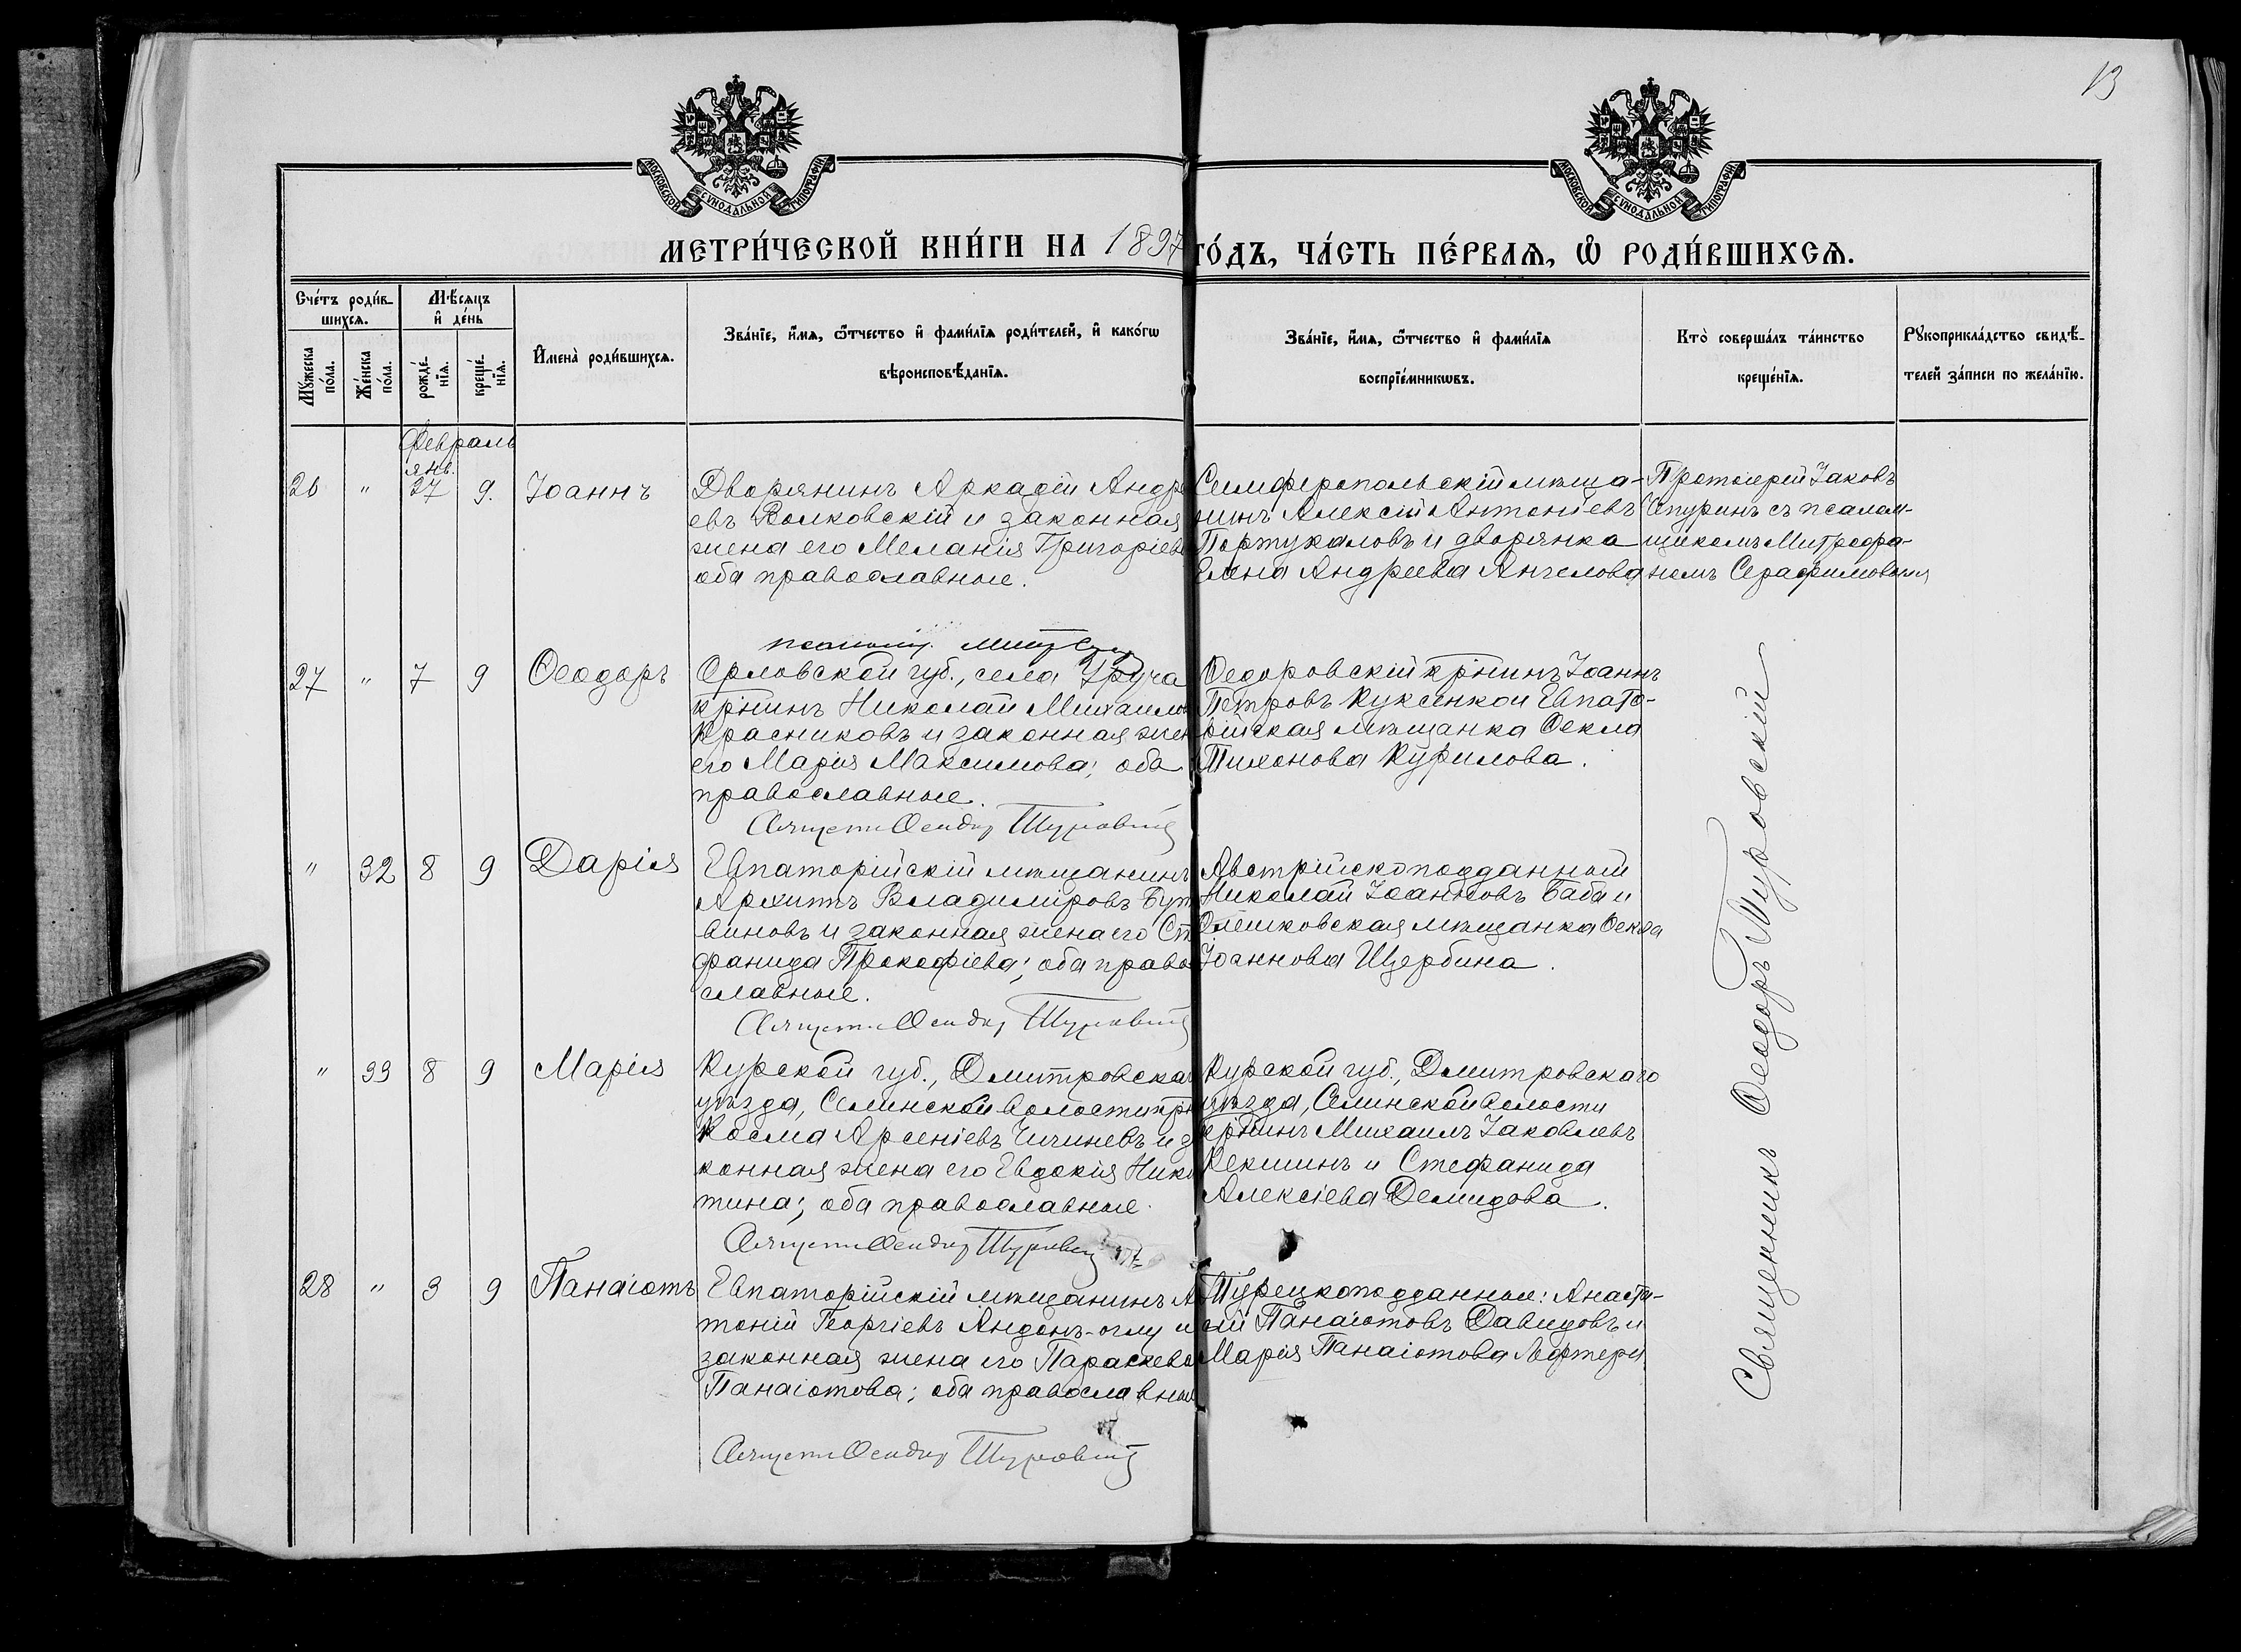 13
МОСКОВСКОЙ СѴНОДАЛЬНОЙ ТИПОГРАФІИ
МОСКОВСКОЙ СѴНОДАЛЬНОЙ ТИПОГРАФІИ
МЕТРИ́ЧЕСКОЙ КНИ́ГИ НА 1897 ГО́ДЪ, ЧА́СТЬ ПЕ́РВАѦ, Ѡ҆ РОДИ́ВШИХСѦ.
Сче́тъ роди́в-
шихсѧ.
Мѣ́сѧцъ
и҆ де́нь
Мꙋ́жеска
по́ла.
Же́нска
по́ла.
рожде́-
нїѧ.
креще́-
нїѧ.
И҆мена̀ роди́вшихсѧ.
Зва́нїе, и҆́мѧ, ѻ҆́тчество и҆ фами́лїѧ роди́телей, и҆ како́гѡ
вѣроисповѣ́данїѧ.
Зва́нїе, и҆́мѧ, ѻ҆́тчество и҆ фами́лїѧ
воспрїе́мникѡвъ.
Кто̀ соверша́лъ та́инство
креще́нїѧ.
Рꙋкоприкла́дство свидѣ́-
телей за́писи по жела́нїю.
Февраль
янв.
26 " 27 9. Іоаннъ
Дворянинъ Аркадій Андре
евъ Волковскій и законная
жена его Меланія Григоріев
оба православные.
Симферопольскій мѣща-
нинъ Алексій Антоніевъ
Портукаловъ и дворянка
Елена Андреева Ангелова
Протоіерей Іаковъ
Чепуринъ съ псалом-
щикомъ Митрофа-
номъ Серафимовымъ
27 " 7 9 Ѳеодоръ
Орловской губ., села
крнинъ Николай Михаилов
Красниковъ и законная жен
его Марія Максимова; оба
православные.
Ѳедоровскій крнинъ Іоаннъ
Петровъ Куксенко и Евпато-
рійская мѣщанка Ѳекла
Тихонова Курилова.
" 32 8 9 Дарія
Евпаторійскій мѣщанинъ
Архиппъ Владиміровъ Бут
виновъ и законная жена его Ст
фанида Прокофіева; оба право
славные.
Австрійскоподданный
Николай Іоанновъ Баба и
Олешковская мѣщанка Ѳекла
Іоаннова Щербина.
" 33 8 9 Марія
Курской губ., Дмитровскаг
уѣзда, Селинской волости крн
Косма Арсеніевъ Чичиневъ и з
конная жена его Евдокія Ники
тина; оба православные.
Курской губ., Дмитровскаго
уѣзда, Селинской волости
крнинъ Михаилъ Іаковлевъ
Кекшинъ и Стефанида
Алексіева Демидова.
28 " 3 9 Панаіотъ
Евпаторійскій мѣщанинъ А
тоній Георгіевъ Андонъ-оглу и
законная жена его Параскева
Панаіотова; оба православные
Турецкоподданные: Анаста-
сій Панаіотовъ Давидовъ и
Марія Панаіотова Лефтери
Священникъ Ѳеодоръ Туровскій